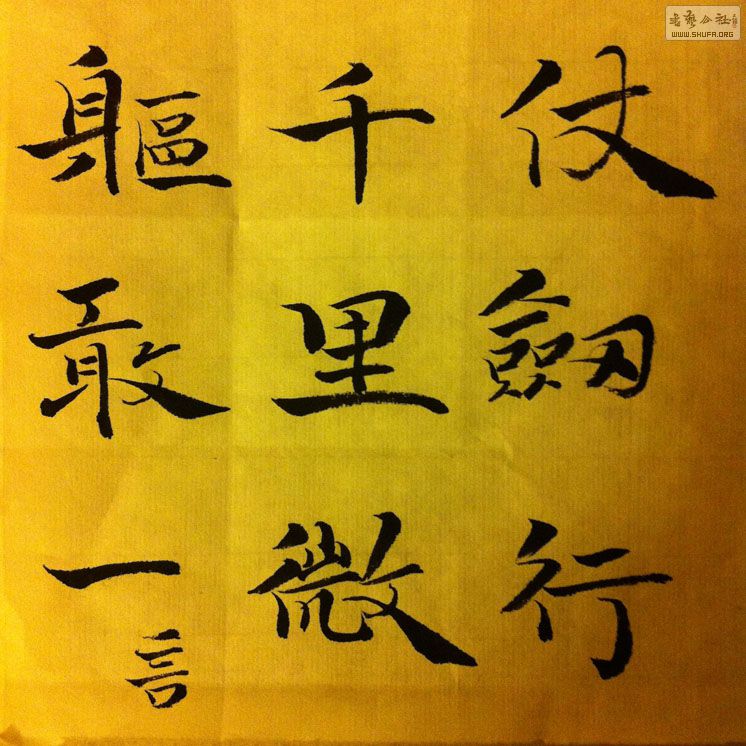 仗劔行
千里微
軀敢一言
書藝公社
WWW.SHUFA.ORG